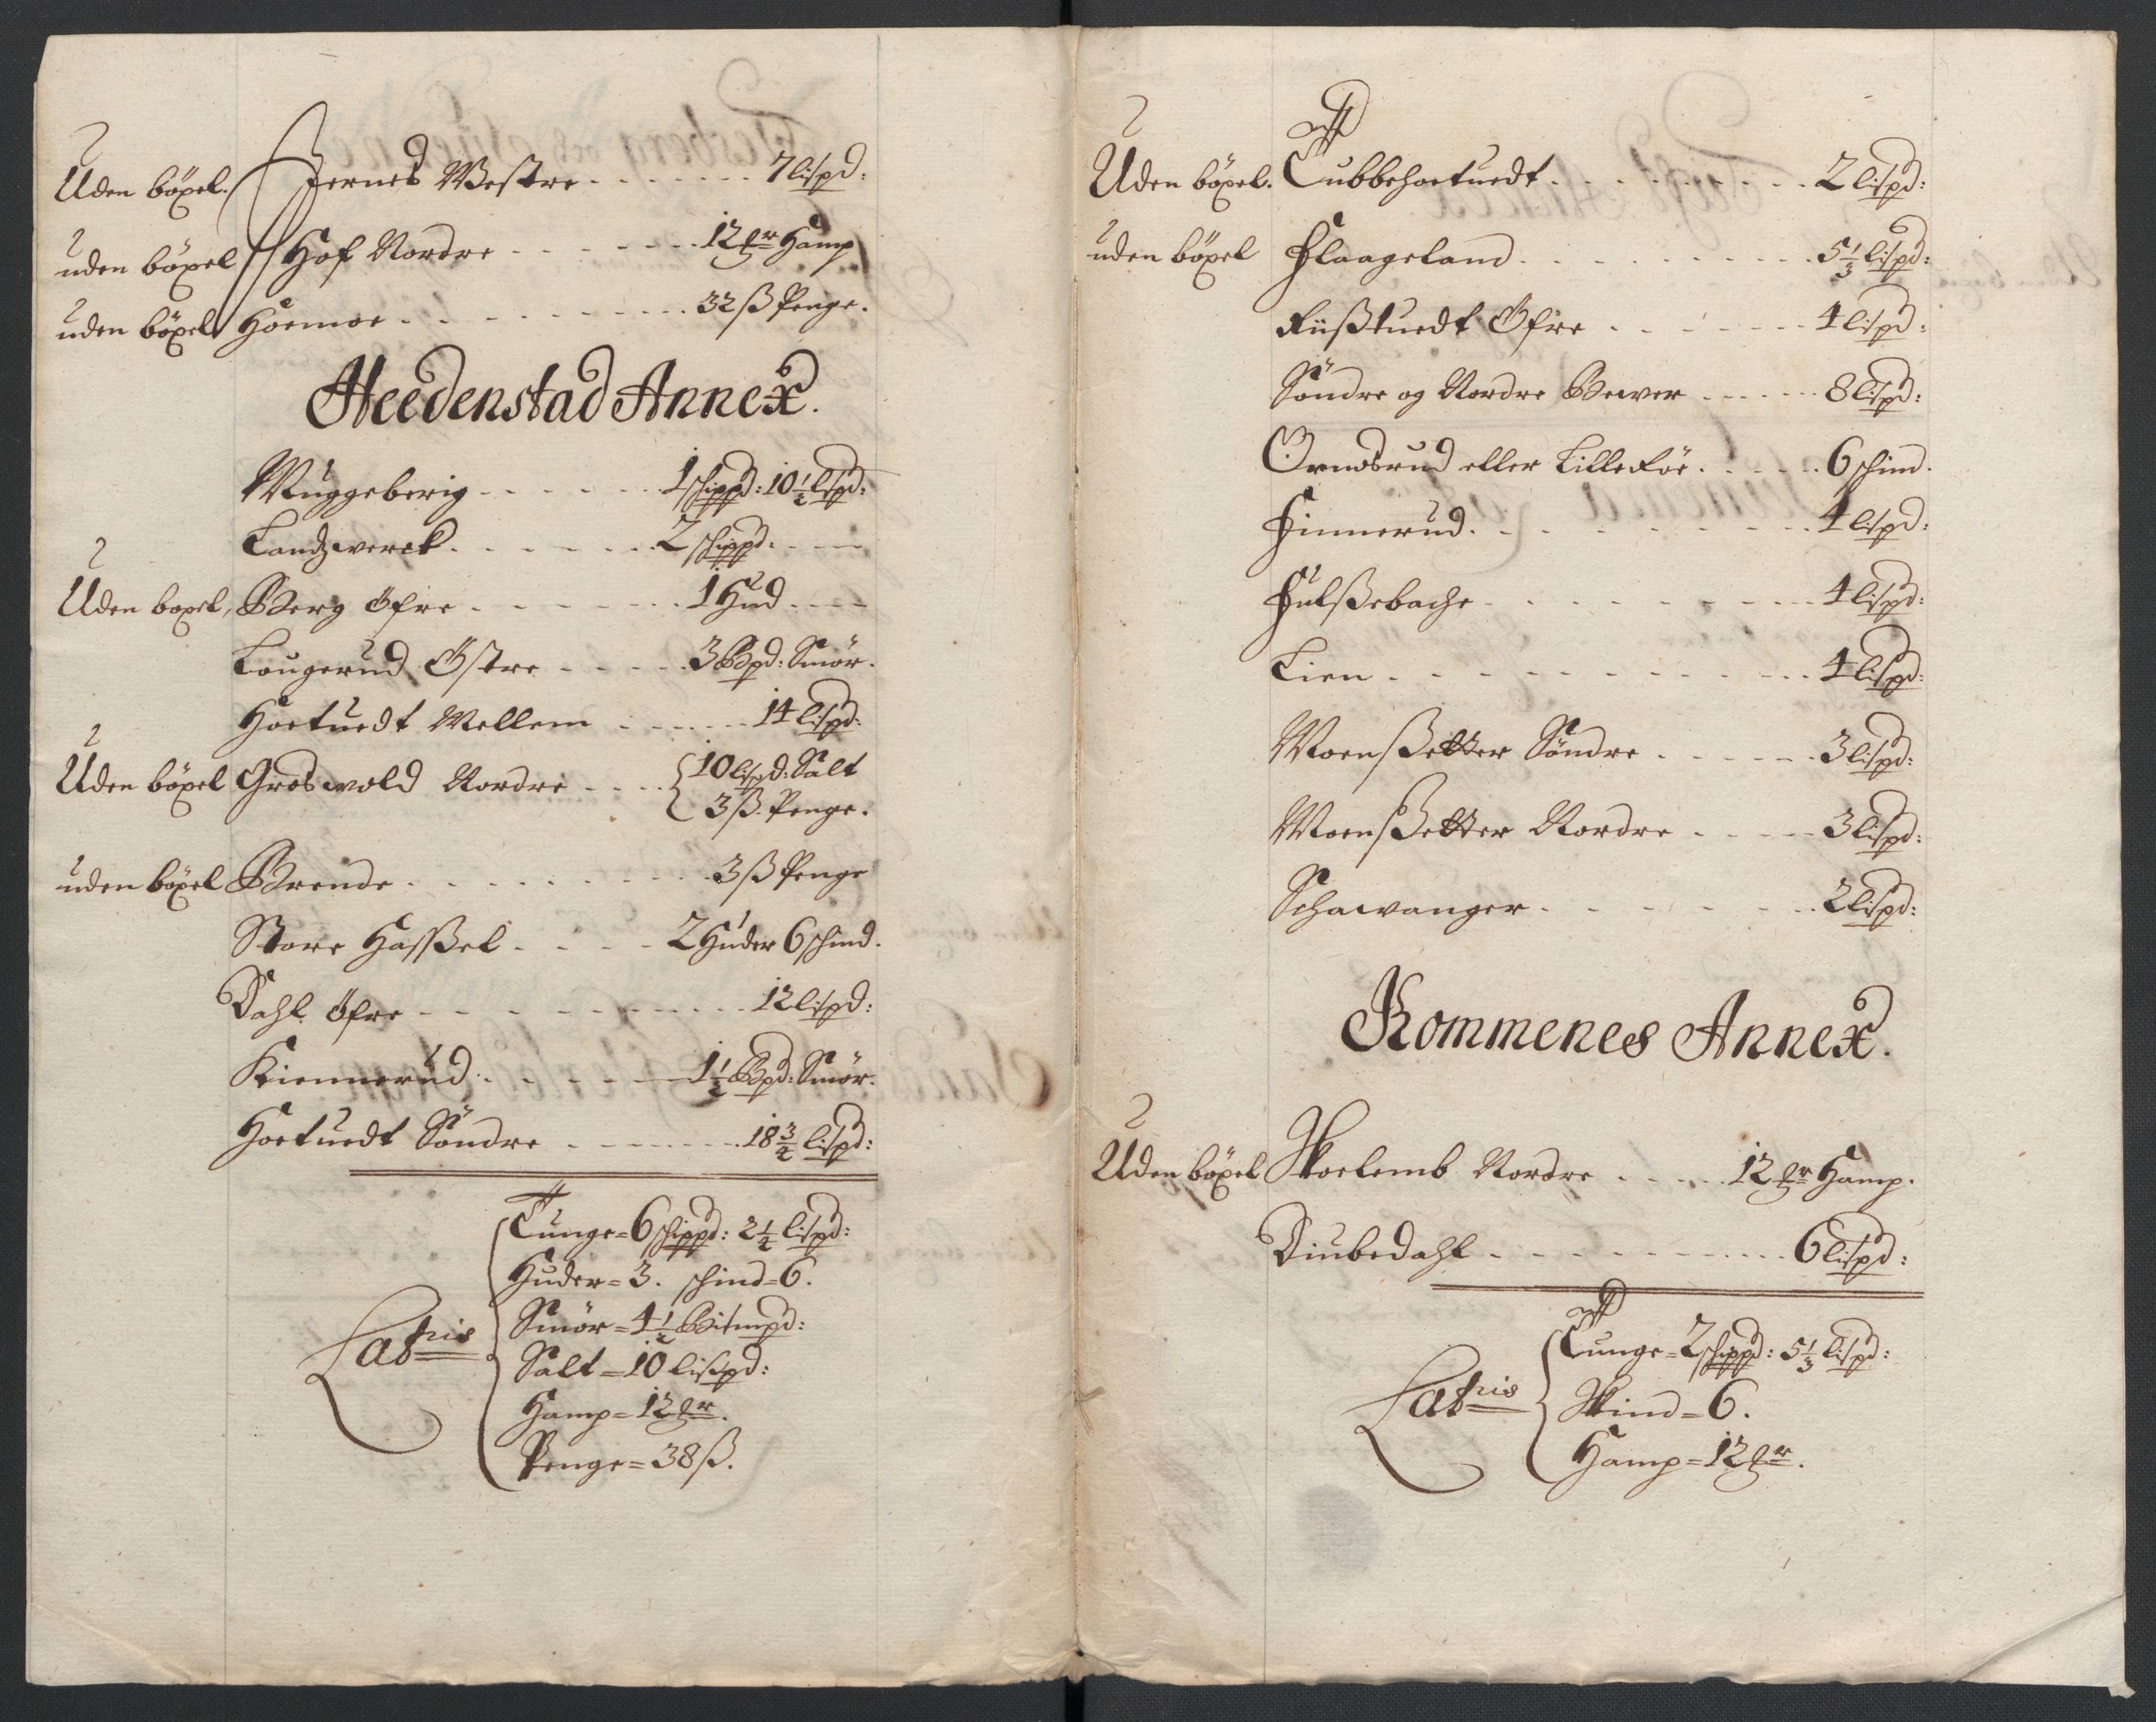 Uden böxel. Jernes Westre - - - - - - - 7 lispd:
uden böxel Hof Nordre - - - - - - - 12 ℔r Hamp
uden böxel Hoemoe - - - - - - - - - 32 ß Penge.
Heedenstad Annex.
Muggeberig - - - - - - 1 schippd: 10½ lispd:
Landzwerck - - - - - - 2 schippd: - - -
Uden böxel, Berg Öfre - - - - - - - 1 Hud - - -
Lougerud Östre - - - - - 3 Bpd: Smör.
Hoetuedt Mellem - - - - - - 14 lispd:
Uden böxel Groswold Nordre - - - - { 10 lispd: Salt
3 ß: Penge.
uden böxel Brende - - - - - - - - - 3 ß Penge
Store Hassßel - - - - - 2 Huder 6 schind.
Dahl Öfre - - - - - - - - - - - 12 lispd:
Kiennerud - - - - - - 1½ Bpd: Smör.
Hoetuedt Söndre - - - - - - - 18¾ lispd:
Tunge = 6 schippd: 2¼ lispd:
Huder = 3. schind = 6.
Smör = 4½ Bitmpd:
Latris
Salt = 10 lißpd:
Hamp = 12 ℔r.
Penge = 38 ß.
Uden böxel. Tubbehoetuedt - - - - - - - - - 2 lispd:
uden böxel Flaageland - - - - - - - - - - 5⅓ lispd:
Rüßtuedt Öfre - - - - - - - 4 lispd:
Söndre og Nordre Bewer - - - - - - 8 lispd:
Ormdsrud eller Lille Föe - - - - - 6 schind.
Finnerud - - - - - - - - - - 4 lispd:
Hulßebache - - - - - - - - - - - 4 lispd:
Lien - - - - - - - - - - - - - 4 lispd:
Moenßetter Söndre - - - - - - 3 lispd:
Moenßetter Nordre - - - - - 3 lispd:
Schawanger - - - - - - - - 2 lispd:
Kommenes Annex.
Uden böxel Skoelemb Nordre - - - - - 12 ℔r Hamp.
Diubedahl - - - - - - - - - - - 6 lispd:
Tunge = 2 schippd: 5⅓ lispd:
Latris
Skind = 6.
Hamp = 12 ℔r.